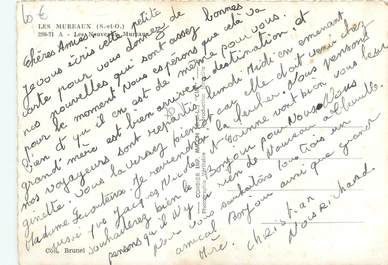 6 €
LES MUREAUX (S.-et-O.)
298-71 A - Les Nouveaux Mureaux
Chères Amies
Je vous écris cette petite
carte pour vous donner de
nos nouvelles qui sont assez bonnes
pour le moment. Nous espérons que cela va
bien et qu'il en est de même pour vous.
grand' mère est bien arrivée à destination, et
nos voyageurs sont repartis lundi Midi en emmenant
ginette. Vous la verrez bientôt car elle doit venir chez
Madame Je reviendrai la chercher. Nous pensons
aussi que Jacques Nicole et Corinne vont bien vous leur
souhaiterez bien le Bonjour pour Nous. Nous
pensons qu'il n'y a rien de Nouveau à
pour vous souhaitons tous trois un
amical Bonjour ainsi que grand
Mère.
Christian
Coll. Brunel